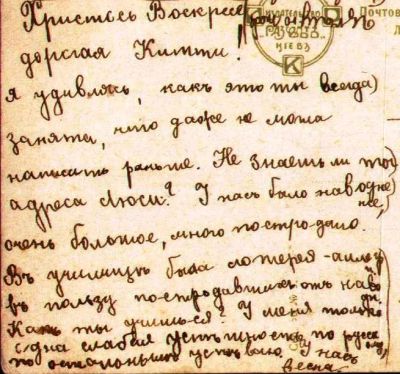 Христосъ Воскресе
дорогая Китти!
я удивляюсь, какъ это ты всегда
занята, что даже не могла
написать раньше. Не знаешь ли ты
адреса Люси? У насъ было наводне
ніе,
очень большое, много пострадало.
Въ училищѣ была лотерея-аллегр
въ пользу пострадавшихъ отъ наво
дн.
Какъ ты учишься? У меня только
одна слабая успѣшность по русск
по остальнымъ успѣваю. У насъ
весна
КІЕВЪ
К
Почтов